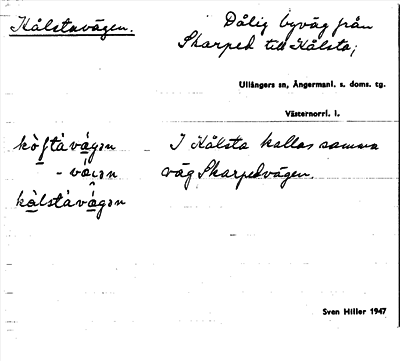 Kålstavägen.
Dålig byväg från
Skarped till Kålsta;
Ullångers sn, Ångermanl. s. doms. tg.
Västernorrl. l.
I Kålsta kallas samma
väg Skarpedvägen.
Sven Hiller 1947